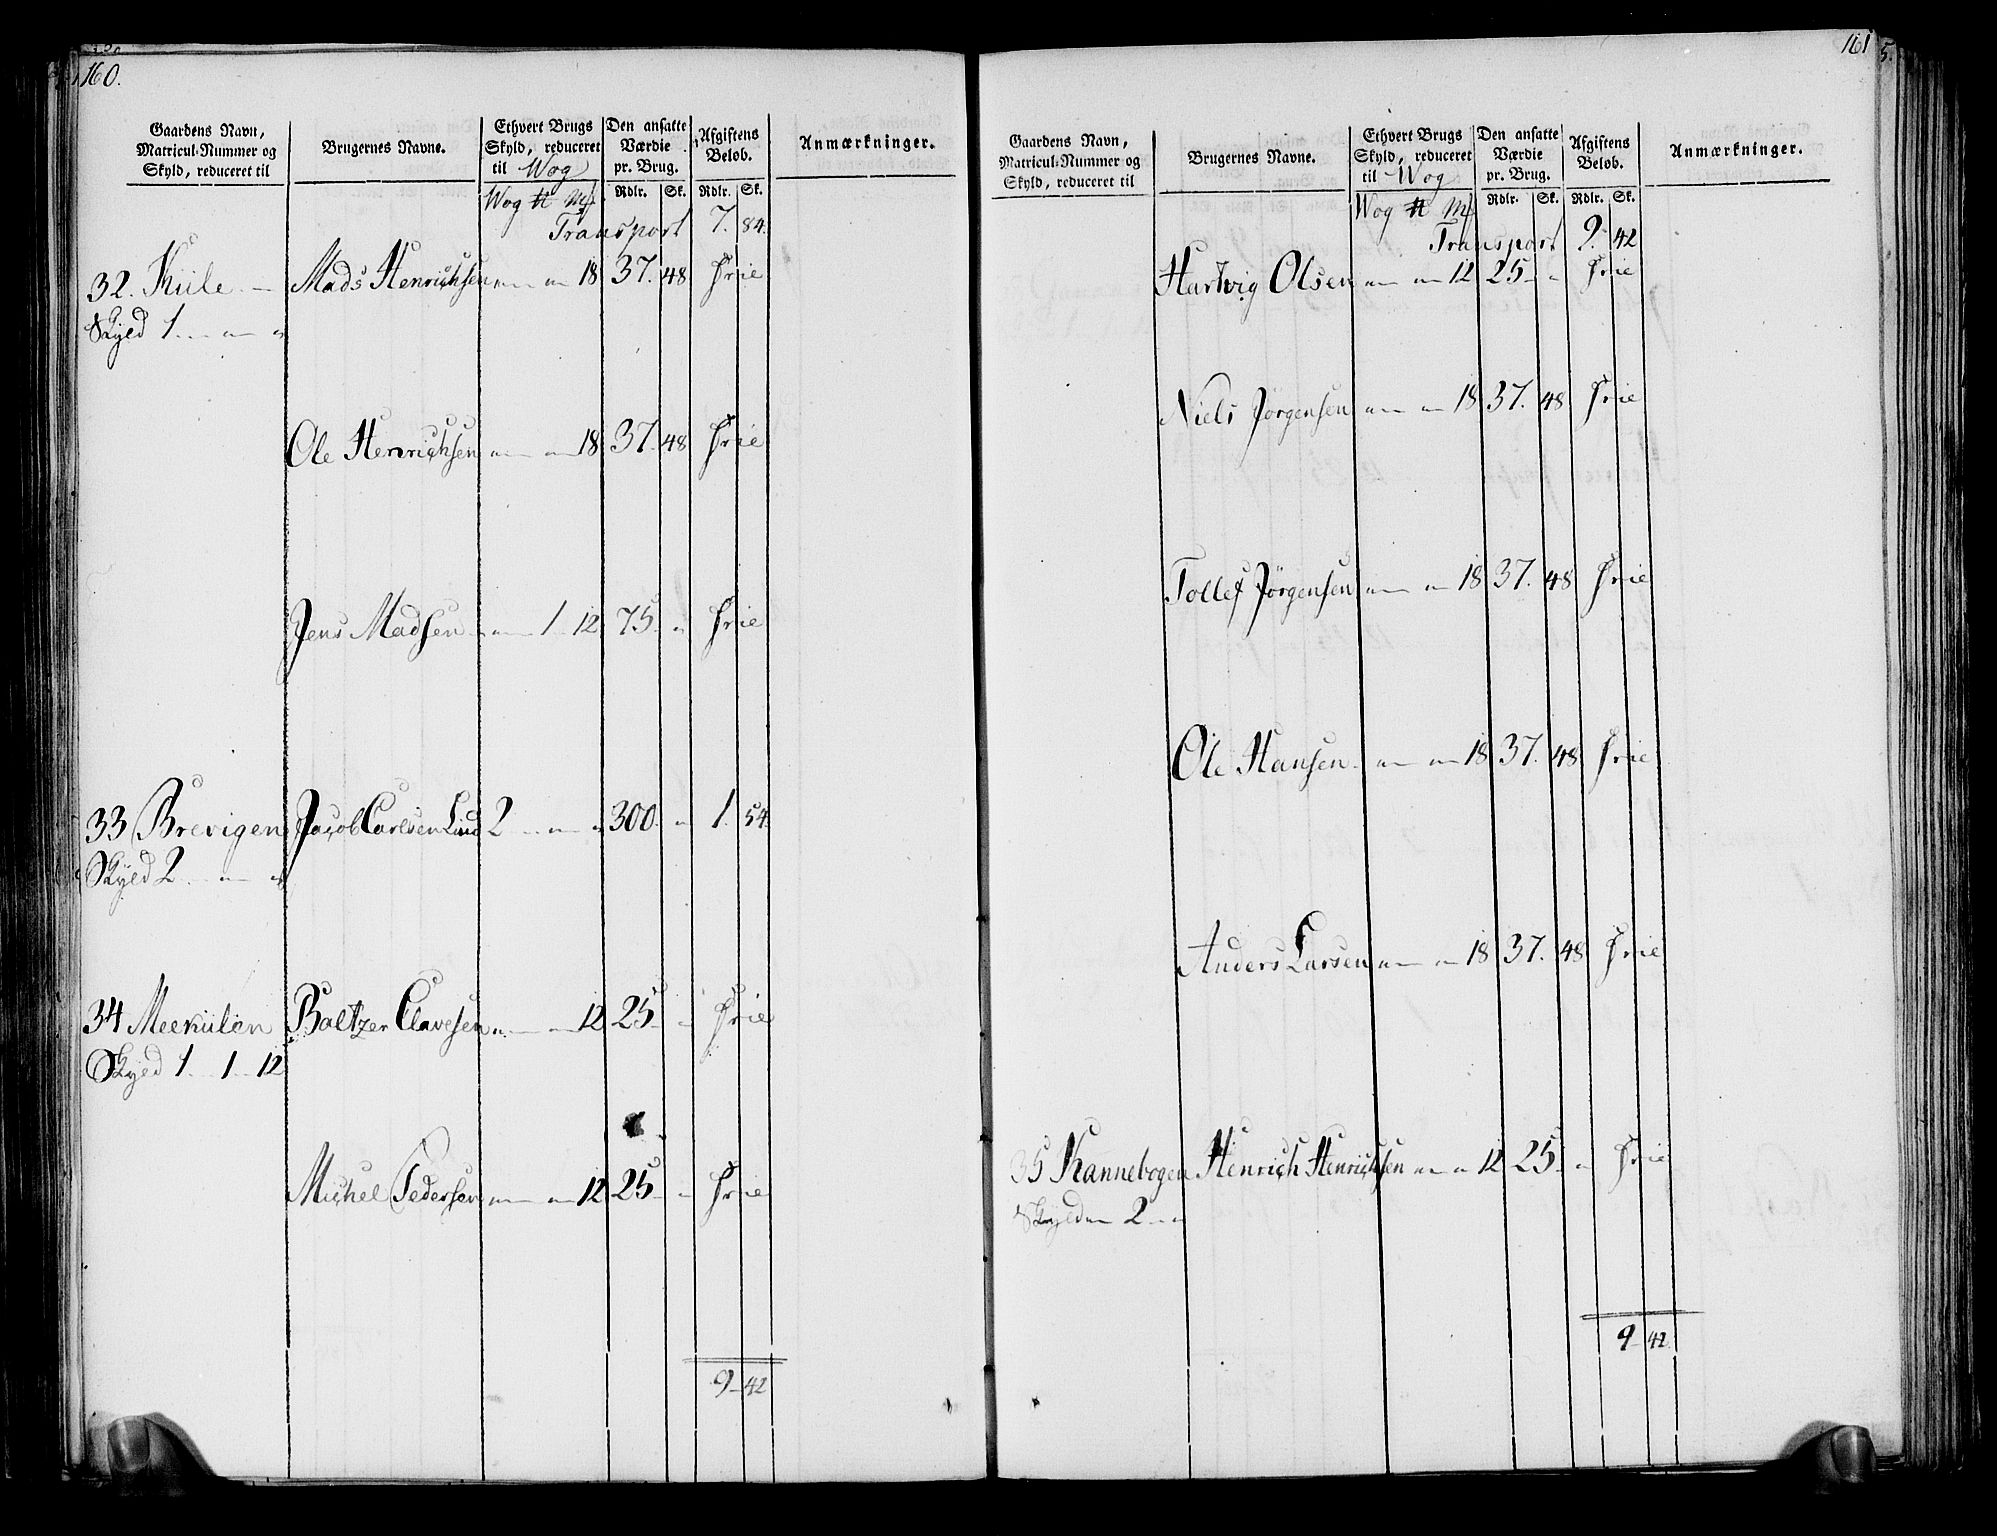 160.
Gaardens Navn, Matricul-Nummer og Skyld, reduceret til
Brugernes Navne.
Ethvert Brugs Skyld, reduceret til Wog
Den ansatte Værdie pr. Brug.
Afgiftens Beløb.
Anmærkninger.
Wog ℔ Mk Rdlr. Sk. Rdlr. Sk.
Transport 7. 84.
32. Kiile — Mads Henrichsen „ — „ 18 37. 48 Frie
Skyld 1. — „ — „
Ole Henrichsen „ — „ 18 37. 48 Frie
Jens Madsen „ — 1 12 75 „ Frie
33 Brevigen Jacob Carlsen Lind 2 — „ — „ 300. „ 1. 54.
Skyld 2 — „ — „
34 Meekiilen Baltzer Clavesen „ — „ 12 25 „ Frie
Skyld 1 — 1 — 12
Michel Pedersen „ — „ 12 25 „ Frie
9 — 42
161
5.
Gaardens Navn, Matricul-Nummer og Skyld, reduceret til
Brugernes Navne.
Ethvert Brugs Skyld, reduceret til Wog
Den ansatte Værdie pr. Brug.
Afgiftens Beløb.
Anmærkninger.
Wog ℔ Mk Rdlr. Sk. Rdlr. Sk.
Transport 9. 42
Hartvig Olsen „ — „ 12 25 „ Frie
Niels Jørgensen „ — „ 18 37. 48 Frie
Tollef Jörgensen „ — „ 18 37. 48 Frie
Ole Hansen „ — „ 18 37. 48 Frie
Anders Larsen „ — „ 18 37. 48 Frie
35 Kannebogen Henrich Henrichsen „ — „ 12 25 „ Frie
Skyld „ — 2 — „
9 42.